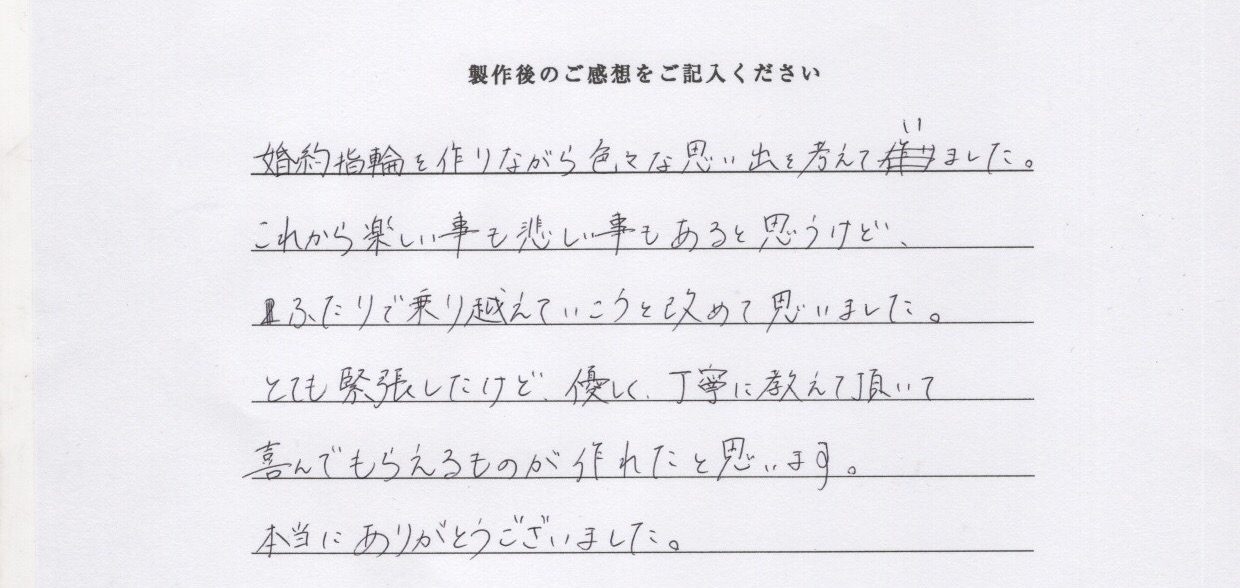 製作後のご感想をご記入ください
婚約指輪を作りながら色々な思い出を考えていました。
これから楽しい事も悲しい事もあると思うけど、
ふたりで乗り越えていこうと改めて思いました。
とても緊張したけど、優しく、丁寧に教えて頂いて
喜んでもらえるものが作れたと思います。
本当にありがとうございました。